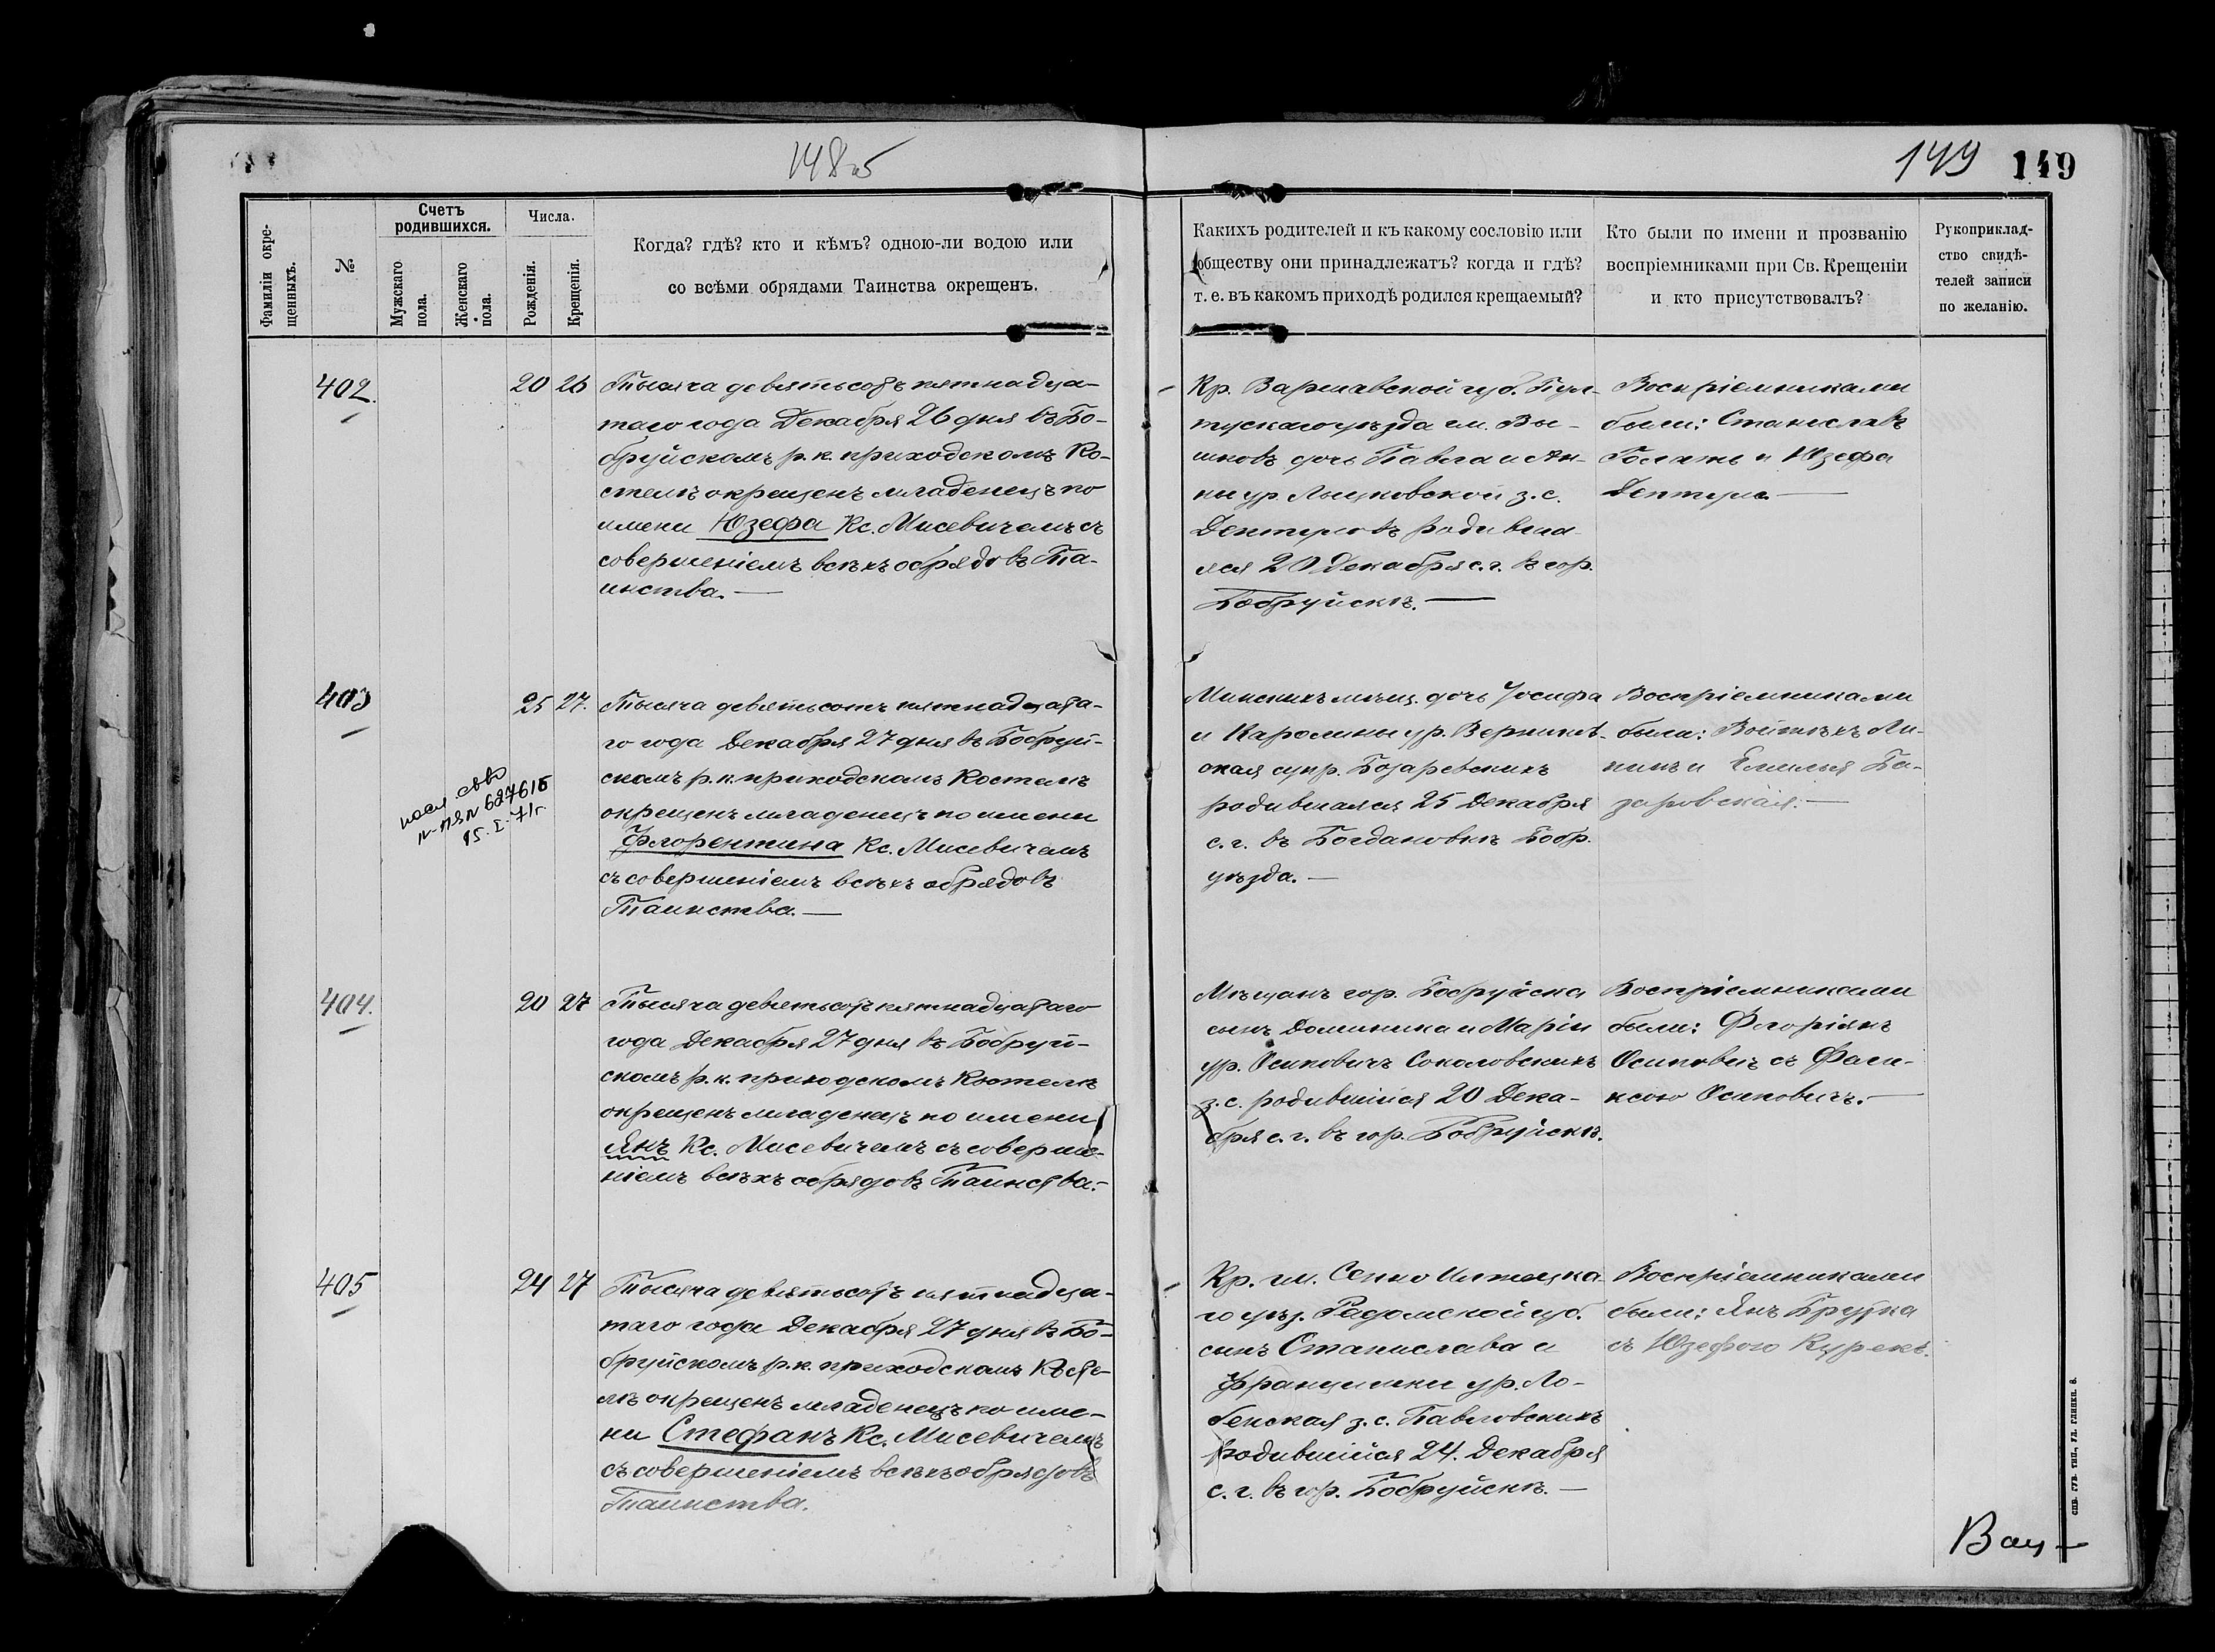 148об
149 149
Фамиліи окре-
щенныхъ.
№
Счетъ
родившихся.
Мужскаго
пола.
Женскаго
пола.
Числа.
Рожденія.
Крещенія.
Когда? гдѣ? кто и кѣмъ? одною-ли водою или
со всѣми обрядами Таинства окрещенъ.
Какихъ родителей и къ какому сословію или
обществу они принадлежатъ? когда и гдѣ?
т. е. въ какомъ приходѣ родился крещаемый?
Кто были по имени и прозванію
воспріемниками при Св. Крещеніи
и кто присутствовалъ?
Рукоприклад-
ство свидѣ-
телей записи
по желанію.
402.
20 26
Тысяча девятьсотъ пятнадца-
таго года Декабря 26 дня въ Бо-
бруйскомъ р. к. приходскомъ Ко-
стелѣ окрещенъ младенецъ по
имени Юзефа Кс. Мисевичемъ съ
совершеніемъ всѣхъ обрядовъ Та-
инства. —
Кр. Варшавской губ. Пул-
тускаго уѣзда гм. Вы-
шковъ дочь Павла и Ан-
ны ур. з. с.
Дептуловъ родивша-
яся 20 Декабря с. г. въ гор.
Бобруйскѣ. —
Воспріемниками
были: Станиславъ
и Юзефа
Дептула —
403
25 27.
Тысяча девятьсотъ пятнадцата-
го года Декабря 27 дня въ Бобруй-
скомъ р. к. приходскомъ Костелѣ
окрещенъ младенецъ по имени
Флорентина Кс. Мисевичемъ
съ совершеніемъ всѣхъ обрядовъ
Таинства. —
627616
15. I. 71г.
Минскихъ мѣщ. дочь Іосифа
и Каролины ур.
супр. Бозаревскихъ
родившаяся 25 Декабря
с. г. въ Богдановкѣ Бобр.
уѣзда. —
Воспріемниками
были: Войтѣхъ Ли-
пинъ и Емилія Ба-
заревская. —
404.
20 27
Тысяча девятьсотъ пятнадцатаго
года Декабря 27 дня въ Бобруй-
скомъ р. к. приходскомъ Костелѣ
окрещенъ младенецъ по имени
Янъ Кс. Мисевичемъ съ соверше-
ніемъ всѣхъ обрядовъ Таинства.-
Мѣщанъ гор. Бобруйска
сынъ Доминика и Маріи
ур. Осиповичъ Соколовскихъ
з. с. родившійся 20 Дека-
бря с. г. въ гор. Бобруйскѣ.
Воспріемниками
были: Флоріянъ
Осиповичъ съ
Осиповичъ. —
405
24 27
Тысяча девятьсотъ пятнадца-
таго года Декабря 27 дня въ Бо-
бруйскомъ р. к. приходскомъ Косте-
лѣ окрещенъ младенецъ по име-
ни Стефанъ Кс. Мисевичемъ
съ совершеніемъ всѣхъ обрядовъ
Таинства.
Кр. гм. Сенно Илжецка-
го уѣз. Радомской губ.
сынъ Станислава и
Францишки ур. Ло-
бенская з. с. Павловскихъ
родившійся 24. Декабря
с. г. въ гор. Бобруйскѣ. —
Воспріемниками
были: Янъ
съ Юзефою Курекъ.
Вац-
СПБ. ГУБ. ТИП., УЛ. ГЛИНКИ. 6.